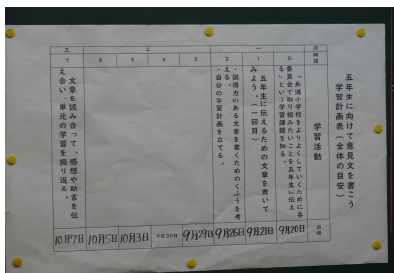 五年生に向けて意見文を書こう
学習計画表(全体の目安)
次
時間
学習活動
日時
一
0
「糸満小学校をよりよくしていくために各
委員会で取り組みたいことを五年生に伝え
る」という学習課題を知る。
9月20日
1
五年生に伝えるための文章を書いて
みよう。(一回目)
9月21日
2
・説得力のある文章を書くためのくふうを考
える。
・自分の学習計画を立てる。
9月26日
二
3
9月29日
4
9月30日
5
10月3日
6
10月5日
三
7
文章を読み合って、感想や助言を伝
え合い、単元の学習を振り返る。
10月7日